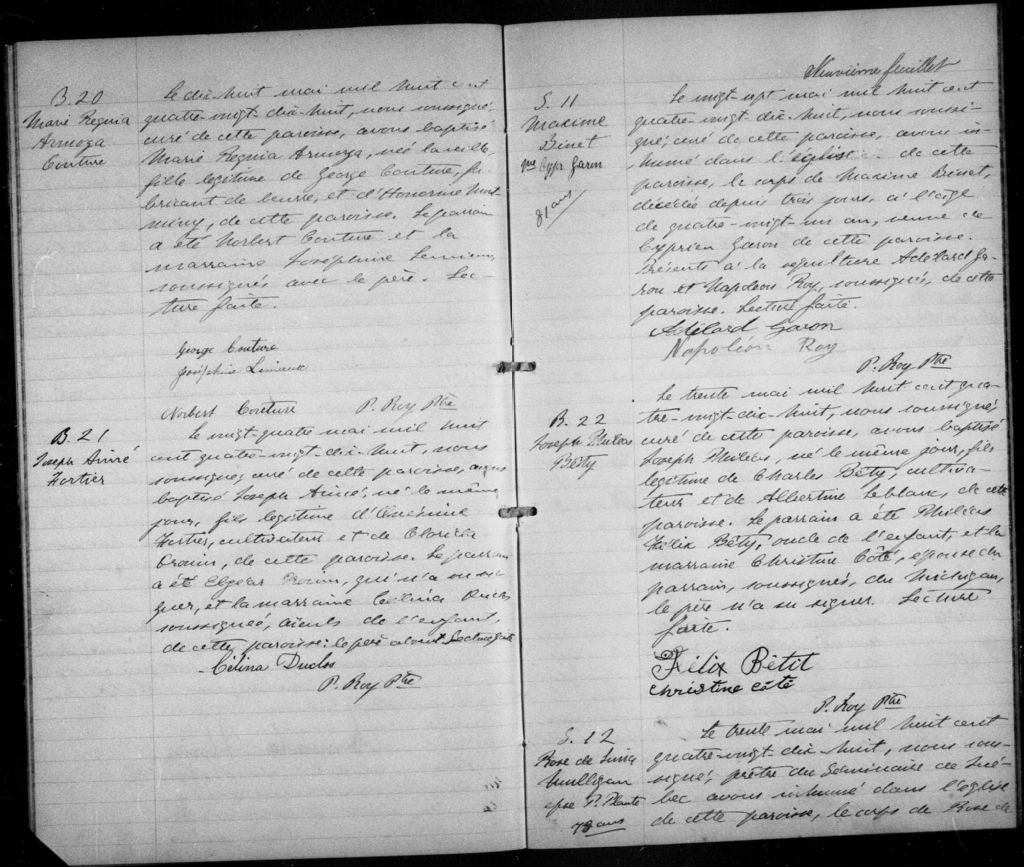 B. 20
Marie Regina
Armoza
Couture
Le dix-huit mai mil huit cent
quatre-vingt-dix-huit, nous soussigné,
curé de cette paroisse, avons baptisé
Marie Regina Armoza, née la veille,
fille légitime de George Couture, fa-
bricant de beurre, et d'Honorine Mont-
miny, de cette paroisse. Le parrain
a été Norbert Couture et la
marraine Joséphine Lemieux
soussignés avec le père. Lec-
ture faite.
George Couture
Joséphine Lemieux
Norbert Couture P. Roy Ptre
B. 21
Joseph Aimé
Fortier
Le vingt-quatre mai mil huit
cent quatre-vingt-dix-huit, nous
soussigné, curé de cette paroisse, avons
baptisé Joseph Aimé, né le même
jour, fils légitime d'Onésime
Fortier, cultivateur et de
de cette paroisse. Le parrain
a été Elzéar qui n'a su si-
gner, et la marraine Célina Duclos
soussignée, aïeuls de l'enfant,
de cette paroisse: le père absent. Lecture faite
Célina Duclos
P. Roy Ptre
Neuvième feuillet
S. 11
Maxime
Binet
Vve Cypr Garon
81 ans
Le vingt-sept mai mil huit cent
quatre-vingt-dix-huit, nous soussi-
gné, curé de cette paroisse, avons in-
humé dans l'église de cette
paroisse, le corps de Maxime Binet,
décédée depuis trois jours, à l'âge
de quatre-vingt-un an, veuve de
Cyprien Garon de cette paroisse.
Présents à la sépulture Adélard Ga-
ron et Napoléon Roy, soussignés, de cette
paroisse. Lecture faite.
Adélard Garon
Napoléon Roy
P. Roy Ptre
B. 22
Joseph Philéas
Béty
Le trente mai mil huit cent qua-
tre-vingt-dix-huit, nous soussigné,
curé de cette paroisse, avons baptisé
Joseph Philéas, né le même jour, fils
légitime de Charles Béty, cultiva-
teur et de Albertine Leblanc, de cette
paroisse. Le parrain a été Philéas
Félix Béty, oncle de l'enfant, et la
marraine Christine Côté, épouse du
parrain, soussignés, du Michigan,
le père n'a su signer. Lecture
faite.
Félix Bétit
Christine Côté
P. Roy Ptre
S. 12
Rose de Lima
Mulligan
epse P. Plante
78 ans
Le trente mai mil huit cent
quatre-vingt-dix-huit, nous sous-
signé, prêtre du Séminaire de Qué-
bec avons inhumé dans l'église
de cette paroisse, le corps de Rose de